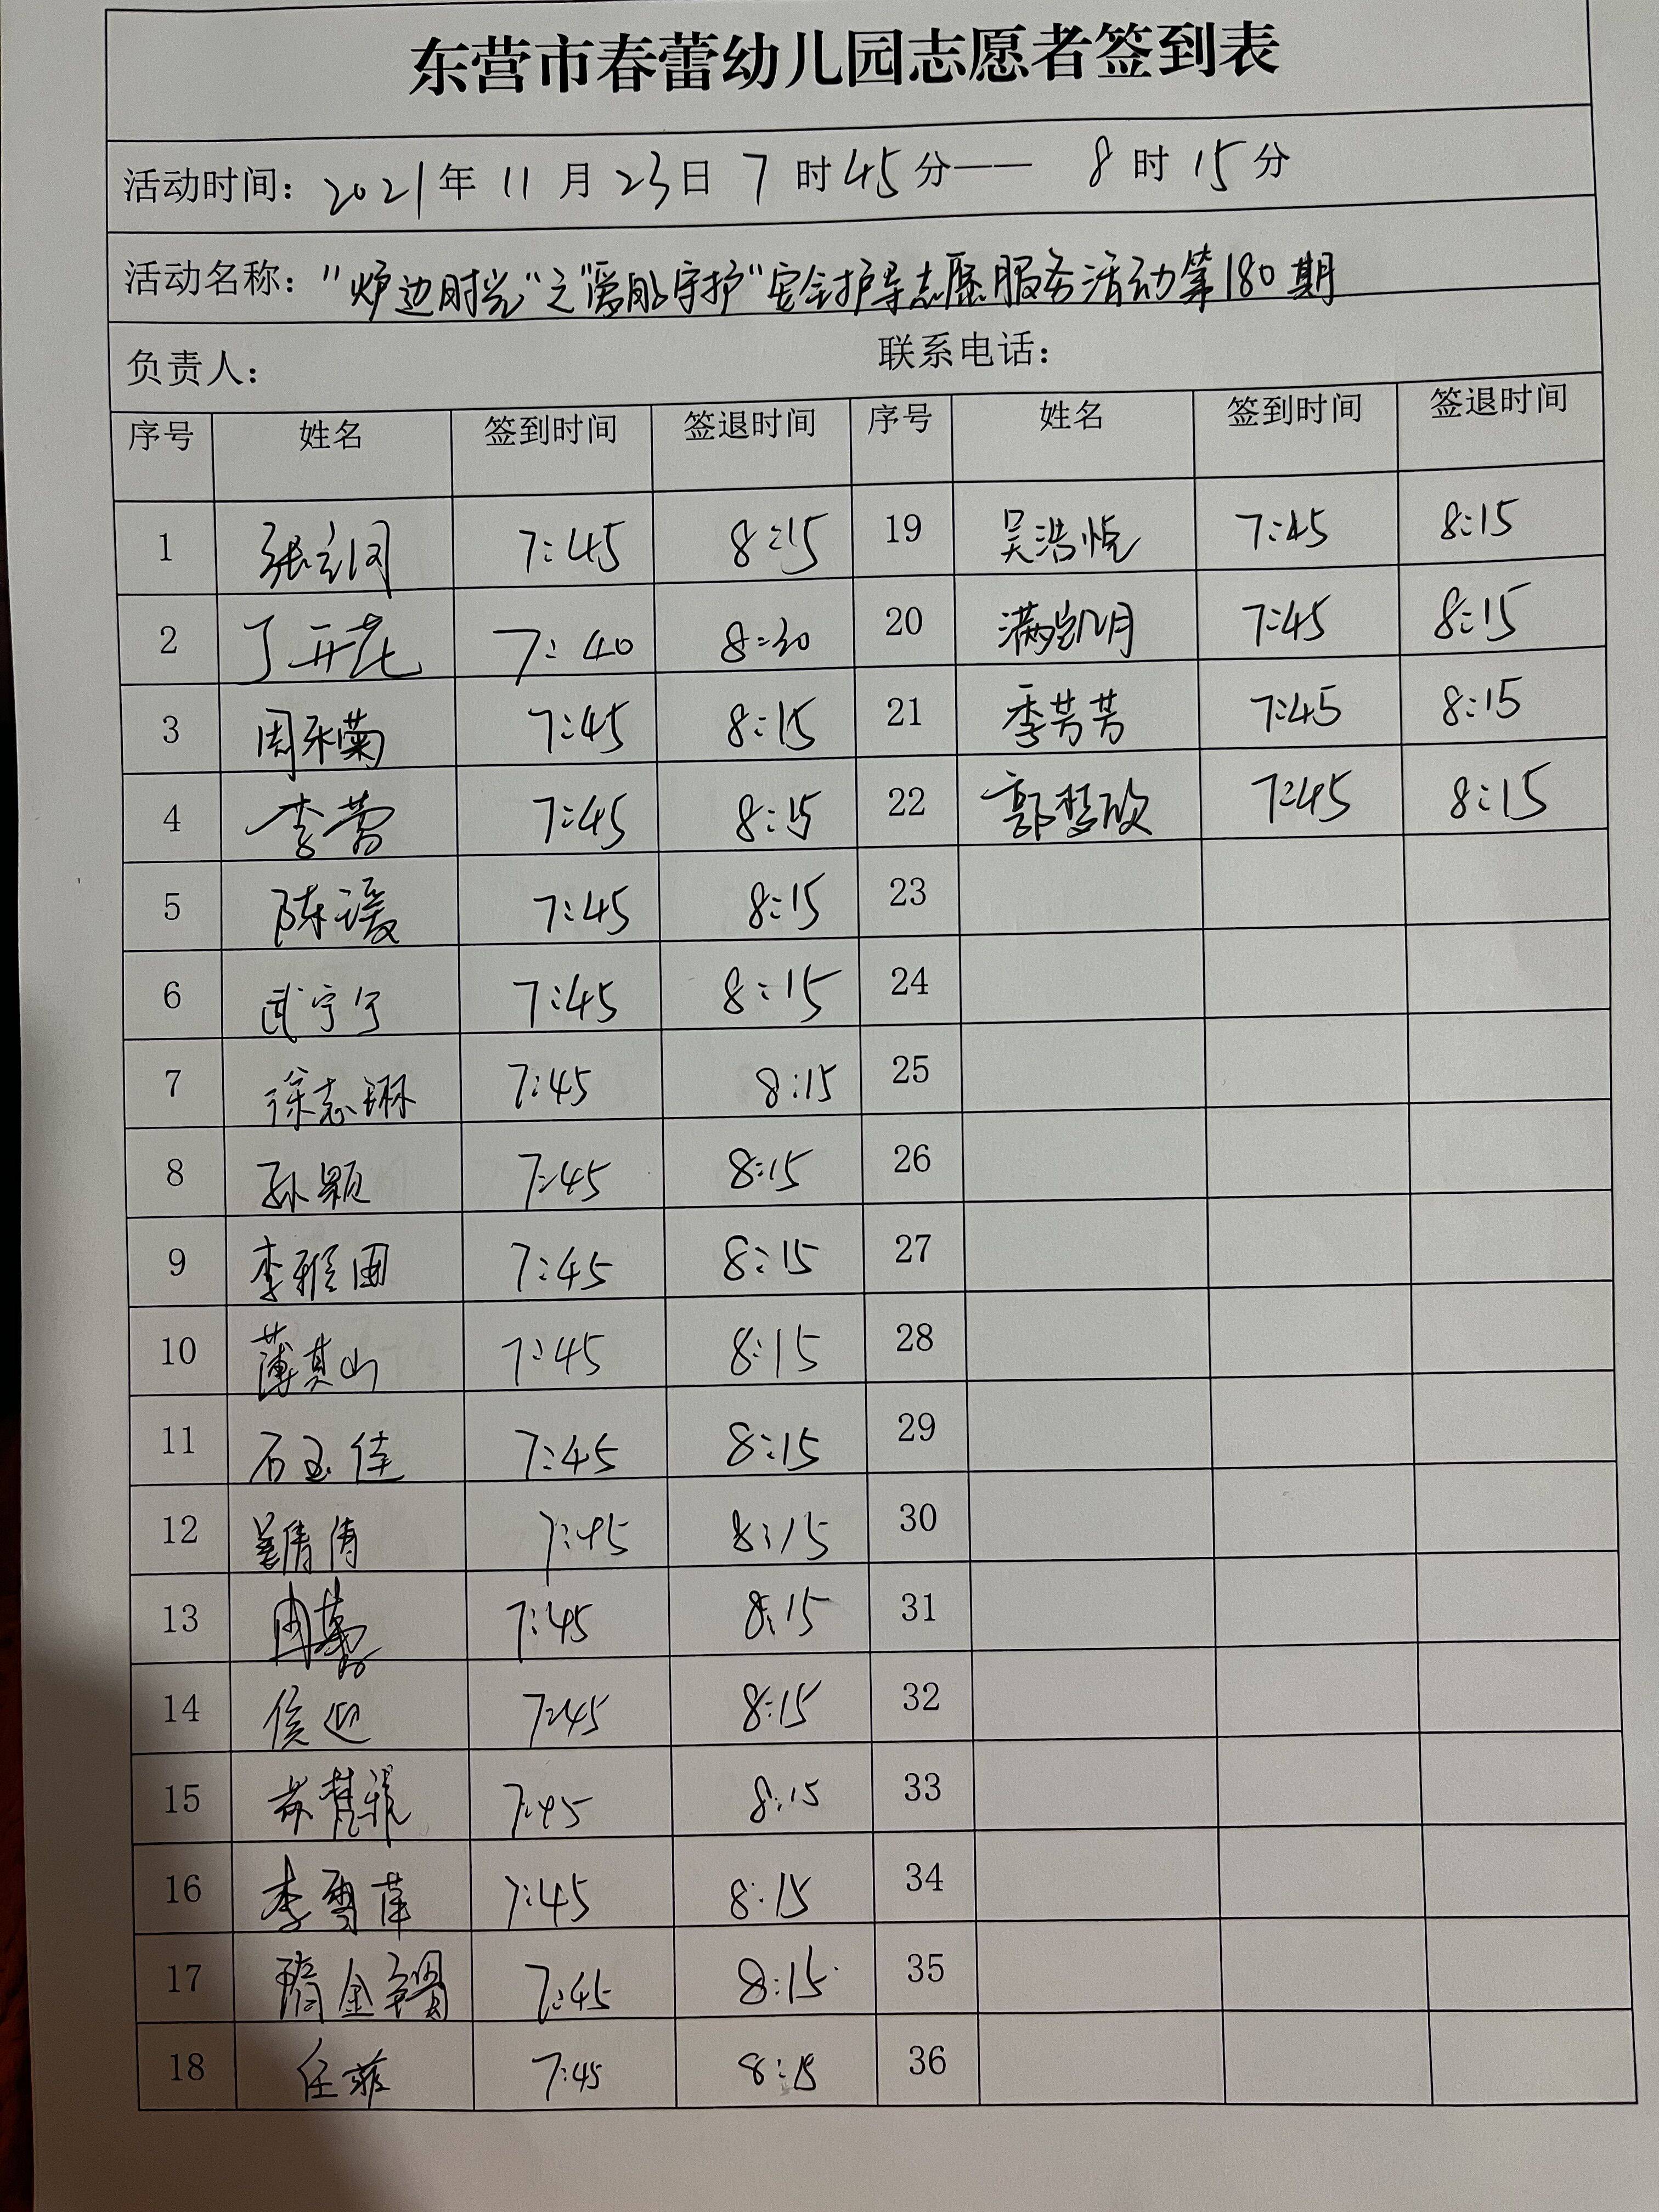 东营市春蕾幼儿园志愿者签到表
活动时间：2021年 11 月 23日 7 时 45分—— 8 时 15分
活动名称："炉边时光"之"爱的守护"安全护导志愿服务活动第180期
负责人： 联系电话：
序号 姓名 签到时间 签退时间 序号 姓名 签到时间 签退时间
1 7:45 8:15 19 吴浩悦 7:45 8:15
2 丁开花 7:40 8:20 20 满凯月 7:45 8:15
3 周永菊 7:45 8:15 21 季芳芳 7:45 8:15
4 李蕾 7:45 8:15 22 郭慧欣 7:45 8:15
5 陈瑗 7:45 8:15 23
6 武宁宁 7:45 8:15 24
7 徐志琳 7:45 8:15 25
8 孙颖 7:45 8:15 26
9 李雅囡 7:45 8:15 27
10 薄其山 7:45 8:15 28
11 石玉佳 7:45 8:15 29
12 姜倩倩 7:45 8:15 30
13 周蕾 7:45 8:15 31
14 侯迎 7:45 8:15 32
15 7:45 8:15 33
16 李雪萍 7:45 8:15 34
17 隋金 7:45 8:15 35
18 任菲 7:45 8:15 36